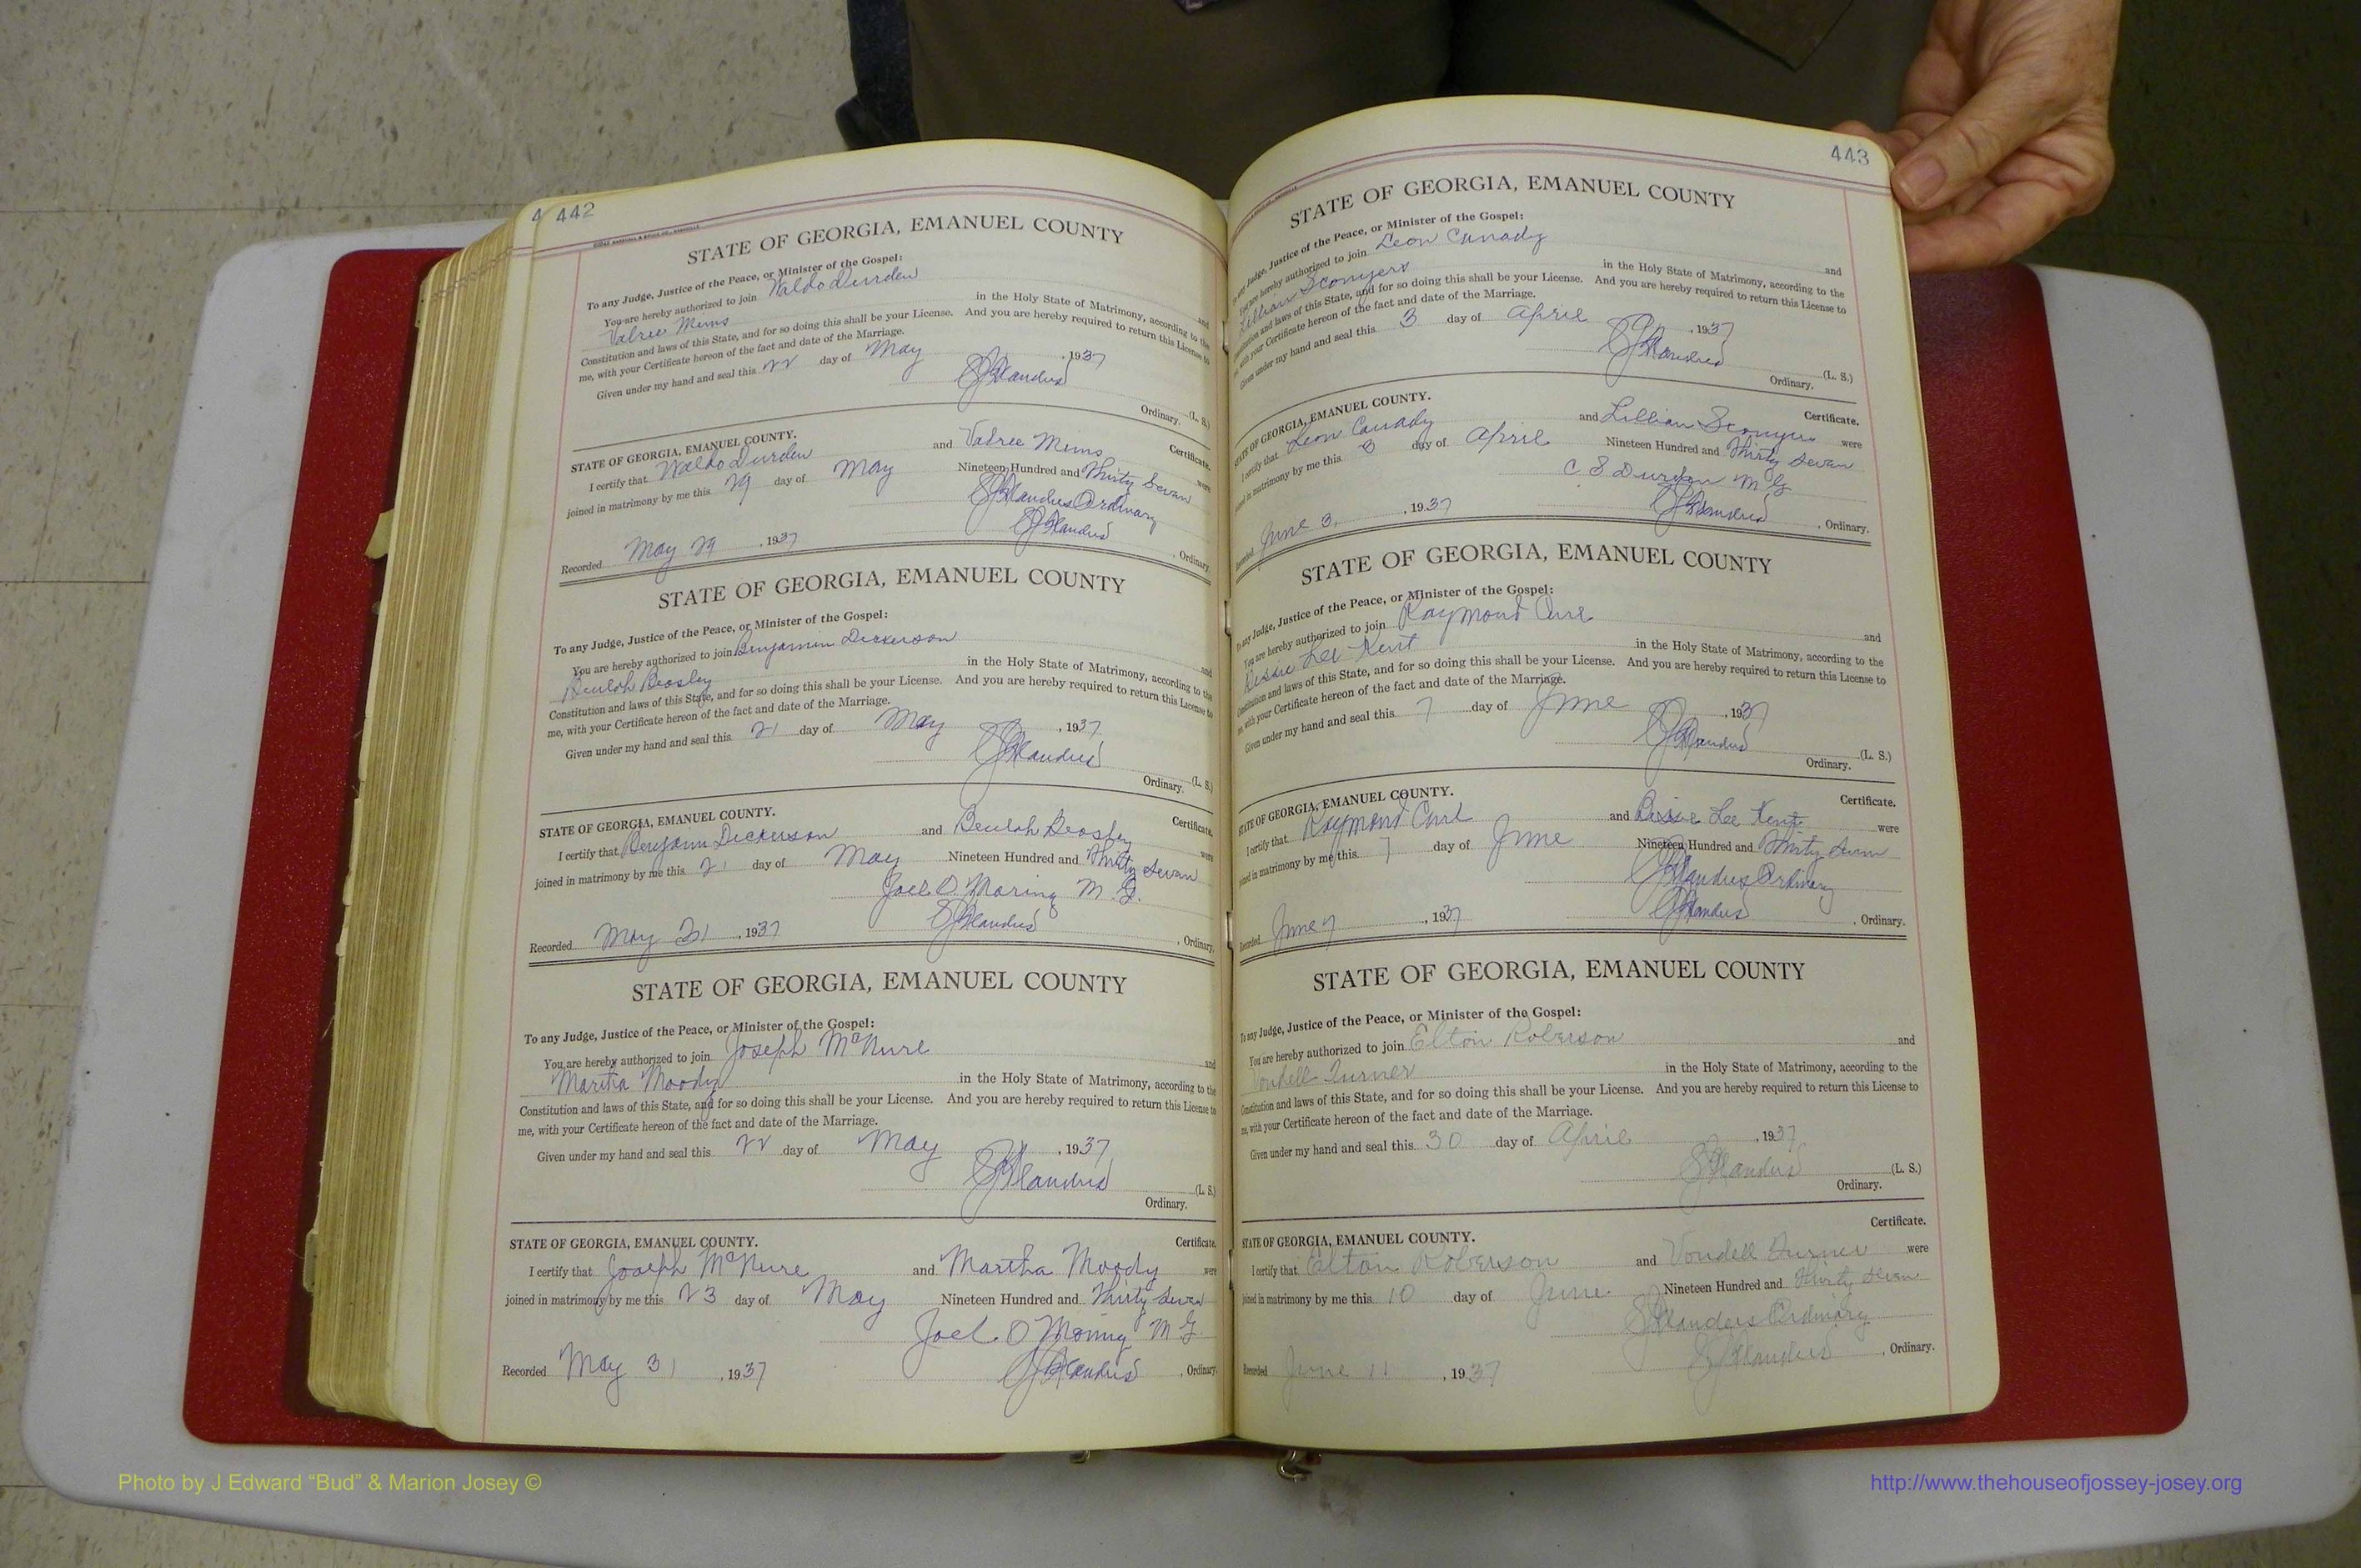 4 442
STATE OF GEORGIA, EMANUEL COUNTY
To any Judge, Justice of the Peace, or Minister of the Gospel:
You are hereby authorized to join Waldo Durden and
Valree Mims in the Holy State of Matrimony, according to the
Constitution and laws of this State, and for so doing this shall be your License. And you are hereby required to return this License to
me, with your Certificate hereon of the fact and date of the Marriage.
Given under my hand and seal this 22 day of May , 1937
(L. S.)
Ordinary.
STATE OF GEORGIA, EMANUEL COUNTY. Certificate.
I certify that Waldo Durden and Valree Mims were
joined in matrimony by me this 29 day of May Nineteen Hundred and Thirty Seven
Flanders Ordinary
Recorded May 29 , 1937 Flanders , Ordinary.
STATE OF GEORGIA, EMANUEL COUNTY
To any Judge, Justice of the Peace, or Minister of the Gospel:
You are hereby authorized to join Benjamin Dickerson and
Beulah Beasley in the Holy State of Matrimony, according to the
Constitution and laws of this State, and for so doing this shall be your License. And you are hereby required to return this License to
me, with your Certificate hereon of the fact and date of the Marriage.
Given under my hand and seal this 21 day of May , 1937
Flanders (L. S.)
Ordinary.
STATE OF GEORGIA, EMANUEL COUNTY. Certificate.
I certify that Benjamin Dickerson and Beulah Beasley were
joined in matrimony by me this 21 day of May Nineteen Hundred and Thirty Seven
Joel O Moring M. G.
Recorded May 31 , 1937 Flanders , Ordinary.
STATE OF GEORGIA, EMANUEL COUNTY
To any Judge, Justice of the Peace, or Minister of the Gospel:
You are hereby authorized to join Joseph McNure and
Martha Moody in the Holy State of Matrimony, according to the
Constitution and laws of this State, and for so doing this shall be your License. And you are hereby required to return this License to
me, with your Certificate hereon of the fact and date of the Marriage.
Given under my hand and seal this 22 day of May , 1937
Flanders (L. S.)
Ordinary.
STATE OF GEORGIA, EMANUEL COUNTY. Certificate.
I certify that Joseph McNure and Martha Moody were
joined in matrimony by me this 23 day of May Nineteen Hundred and Thirty Seven
Joel O Moring M G
Recorded May 31 , 1937 Flanders , Ordinary.
443
STATE OF GEORGIA, EMANUEL COUNTY
To any Judge, Justice of the Peace, or Minister of the Gospel:
You are hereby authorized to join Leon Canady and
Lillian Sconyers in the Holy State of Matrimony, according to the
Constitution and laws of this State, and for so doing this shall be your License. And you are hereby required to return this License to
me, with your Certificate hereon of the fact and date of the Marriage.
Given under my hand and seal this 3 day of April , 1937
Flanders (L. S.)
Ordinary.
STATE OF GEORGIA, EMANUEL COUNTY. Certificate.
I certify that Leon Canady and Lillian Sconyers were
joined in matrimony by me this 3 day of April Nineteen Hundred and Thirty Seven
C S Durden M G
Recorded June 3, , 1937 Flanders , Ordinary.
STATE OF GEORGIA, EMANUEL COUNTY
To any Judge, Justice of the Peace, or Minister of the Gospel:
You are hereby authorized to join Raymond and
Bessie Lee Kent in the Holy State of Matrimony, according to the
Constitution and laws of this State, and for so doing this shall be your License. And you are hereby required to return this License to
me, with your Certificate hereon of the fact and date of the Marriage.
Given under my hand and seal this 7 day of June , 1937
Flanders (L. S.)
Ordinary.
STATE OF GEORGIA, EMANUEL COUNTY. Certificate.
I certify that Raymond and Bessie Lee Kent were
joined in matrimony by me this 7 day of June Nineteen Hundred and Thirty Seven
Flanders Ordinary
Recorded June 7 , 1937 Flanders , Ordinary.
STATE OF GEORGIA, EMANUEL COUNTY
To any Judge, Justice of the Peace, or Minister of the Gospel:
You are hereby authorized to join Elton Roberson and
Vondell Turner in the Holy State of Matrimony, according to the
Constitution and laws of this State, and for so doing this shall be your License. And you are hereby required to return this License to
me, with your Certificate hereon of the fact and date of the Marriage.
Given under my hand and seal this 30 day of April , 1937
Flanders (L. S.)
Ordinary.
STATE OF GEORGIA, EMANUEL COUNTY. Certificate.
I certify that Elton Roberson and Vondell Turner were
joined in matrimony by me this 10 day of June Nineteen Hundred and Thirty Seven
Flanders Ordinary
Recorded June 11 , 1937 Flanders , Ordinary.
Photo by J Edward “Bud” & Marion Josey ©
http://www.thehouseofjossey-josey.org